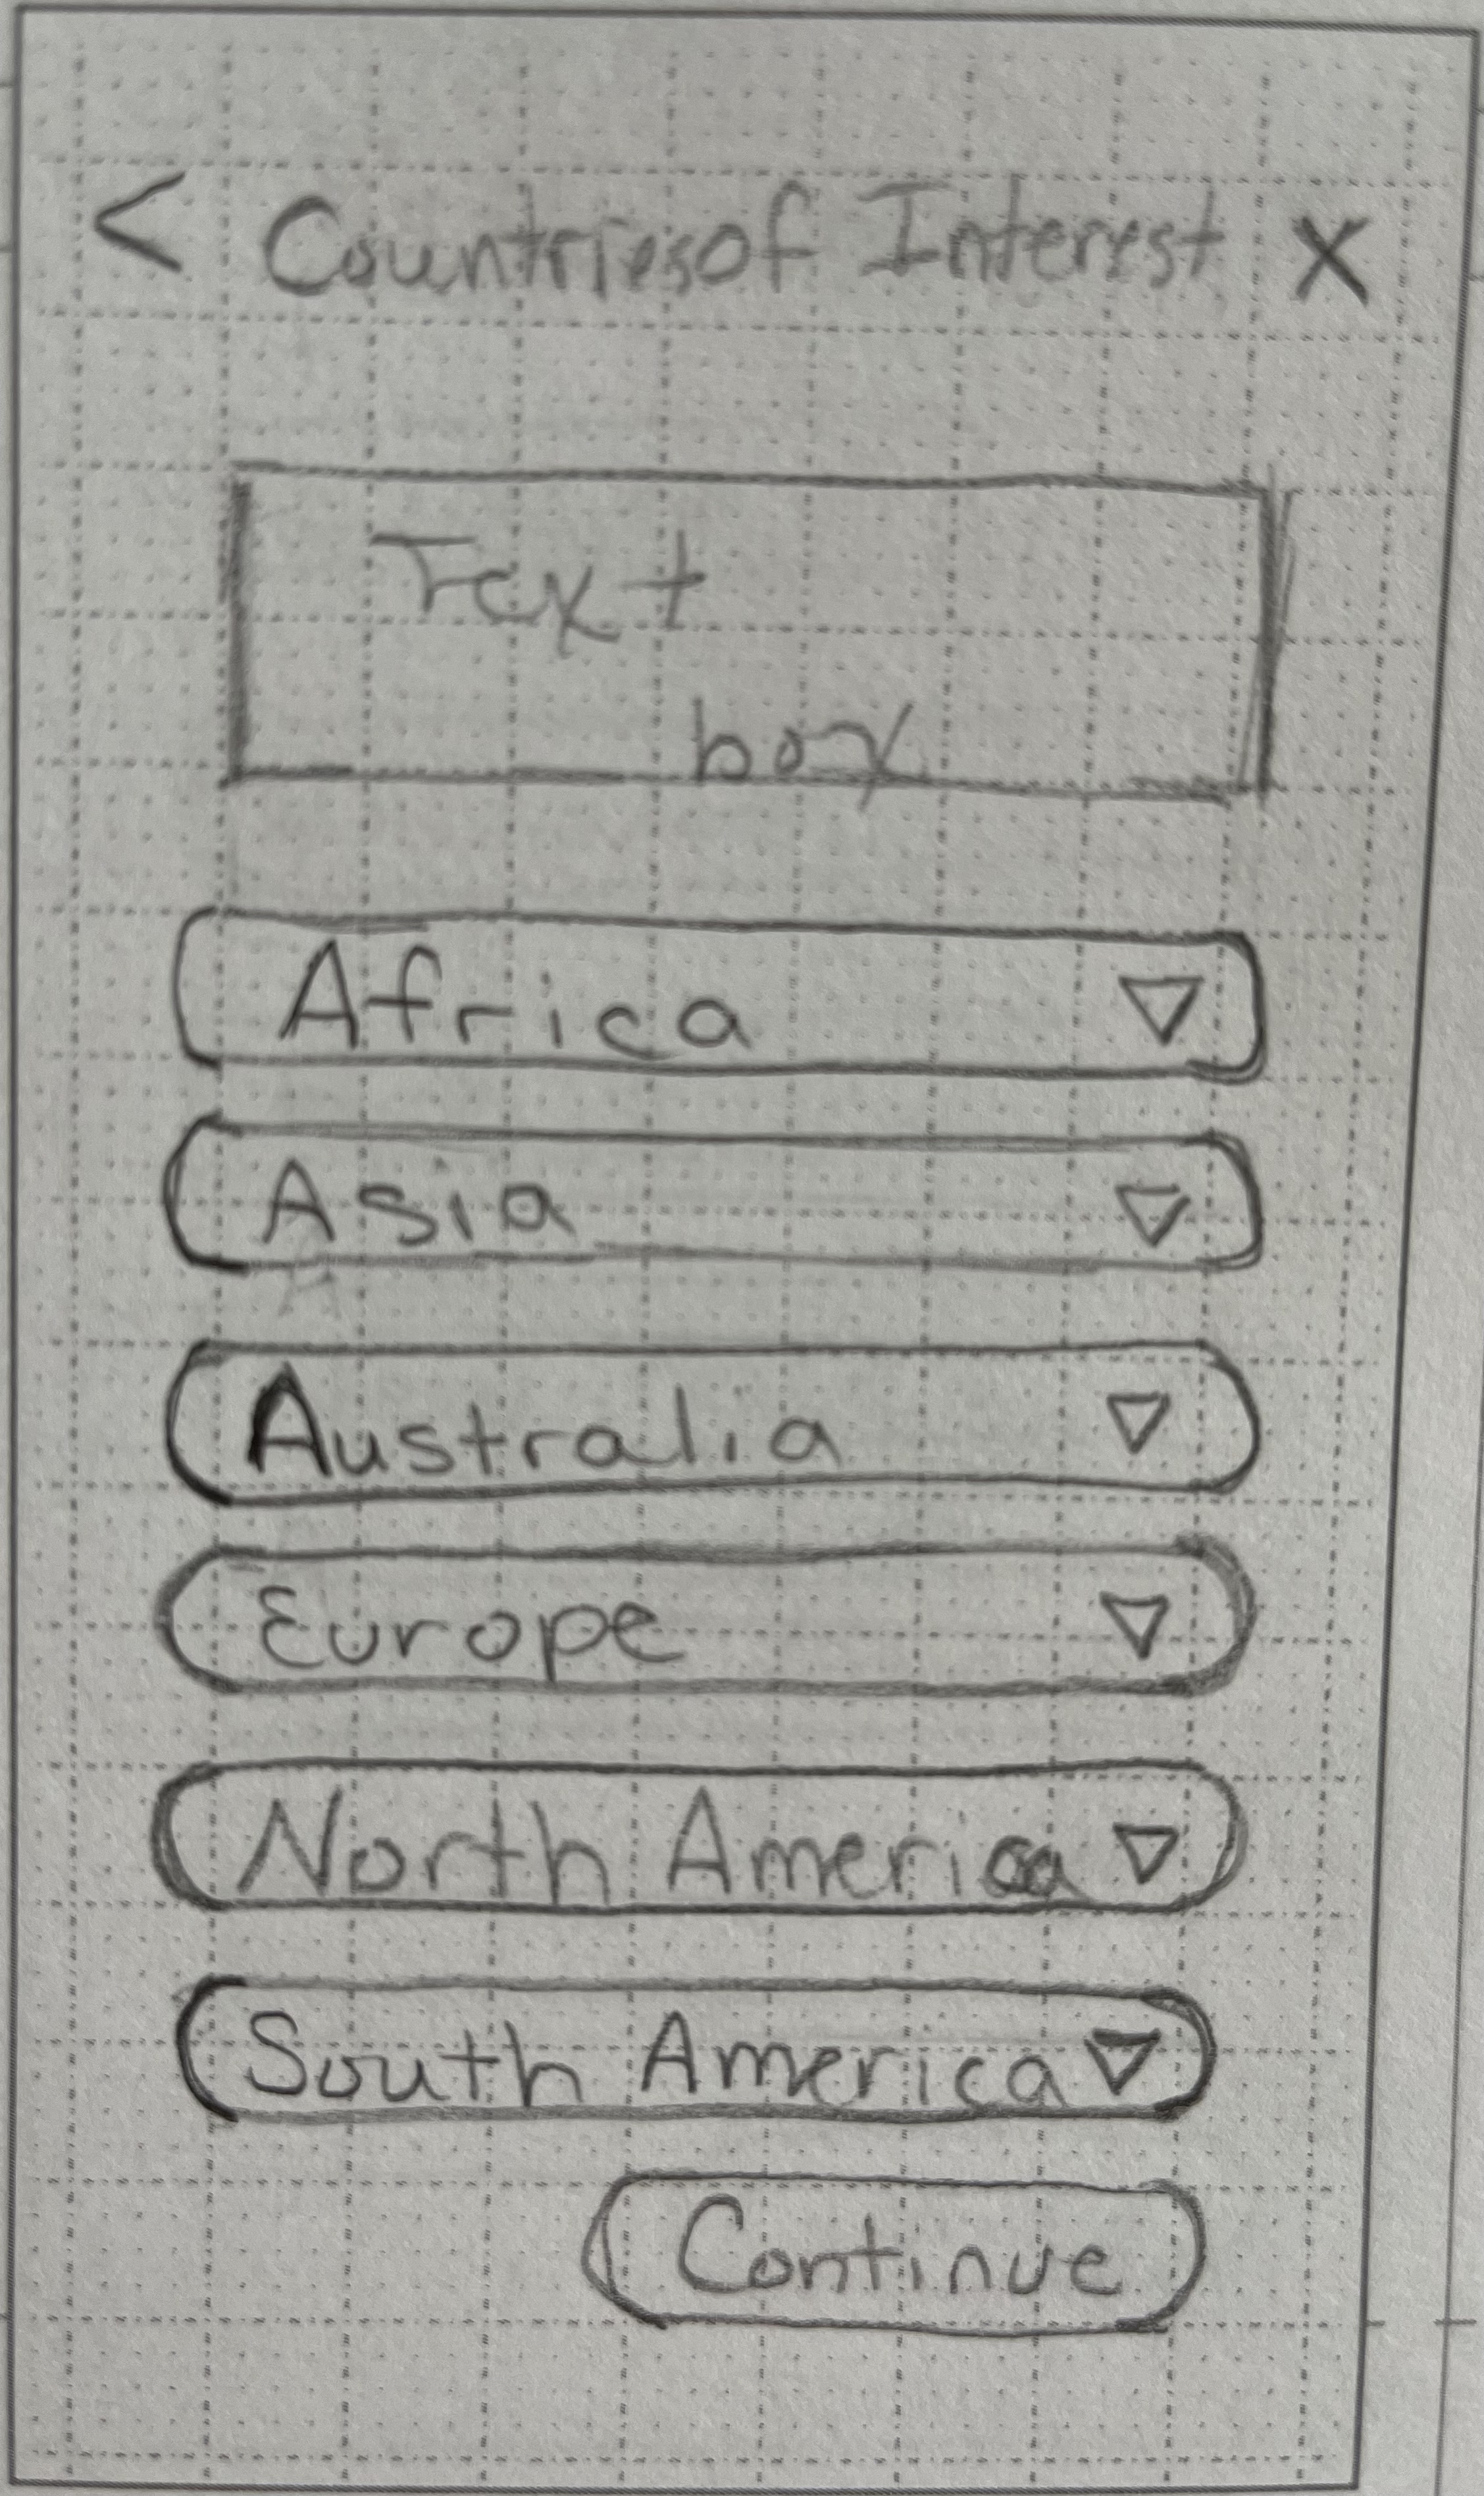 < Countries of Interest X
Text
box
Africa
Asia
Australia
Europe
North America
South America
Continue